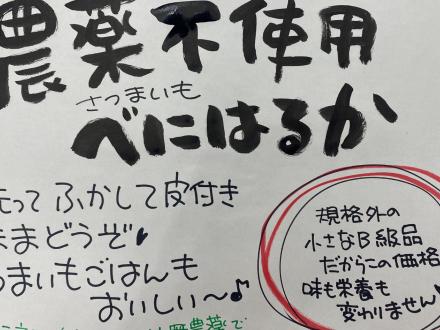 農薬不使用
さつまいも
べにはるか
って ふかして皮付き
ままどうぞ♥
つまいもごはんも
おいしい〜♪
規格外の
小さなB級品
だからこの価格
味も栄養も
変わりません
無農薬で